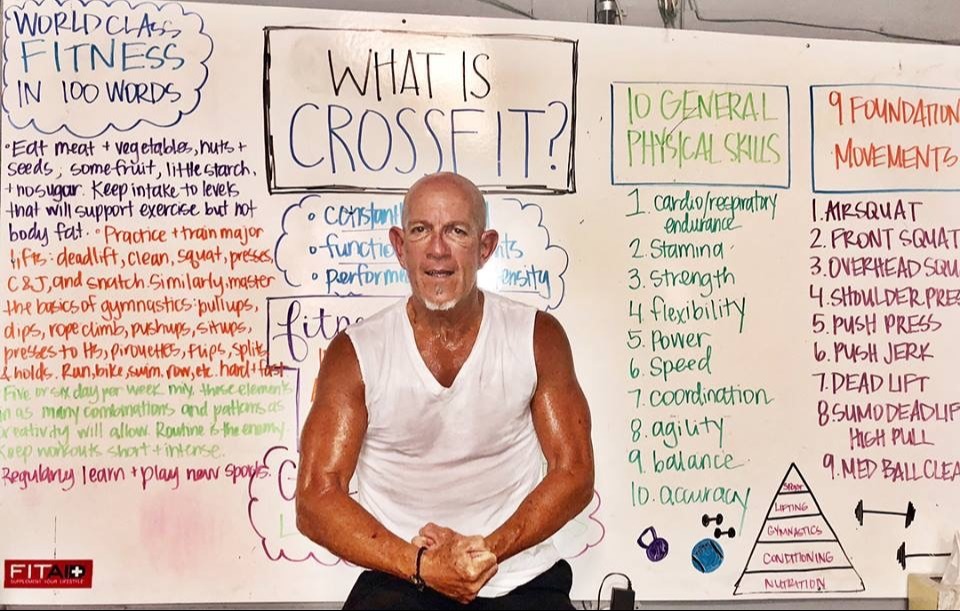 WORLD CLASS
FITNESS
IN 100 WORDS
• Eat meat + vegetables, nuts +
seeds, some fruit, little starch,
+ no sugar. Keep intake to levels
that will support exercise but not
body fat. • Practice + train major
lifts: deadlift, clean, squat, presses
C&J, and snatch. Similarly, master
the basics of gymnastics: pullups,
dips, rope climb, pushups, situps,
presses to HS, pirouettes, flips, splits
& holds. Run, bike, swim, row, etc. hard + fast
Five or six day per week mix these elements
in as many combinations and patterns as
creativity will allow. Routine is the enemy.
Keep workouts short + intense.
Regularly learn + play new sports.
FITAID
SUPPLEMENT YOUR LIFESTYLE
WHAT IS
CROSSFIT?
• constant
• functio ts
• performe ensity
fitne
10 GENERAL
PHYSICAL SKILLS
1. cardio/respiratory
endurance
2. Stamina
3. strength
4 flexibility
5. Power
6. Speed
7. coordination
8. agility
9. balance
10. accuracy
SPORT
LIFTING
GYMNASTICS
CONDITIONING
NUTRITION
9 FOUNDATION
MOVEMENTS
1. AIRSQUAT
2. FRONT SQUAT
3. OVERHEAD SQU
4. SHOULDER PRE
5. PUSH PRESS
6. PUSH JERK
7. DEAD LIFT
8. SUMO DEADLIF
HIGH PULL
9. MED BALL CLEA